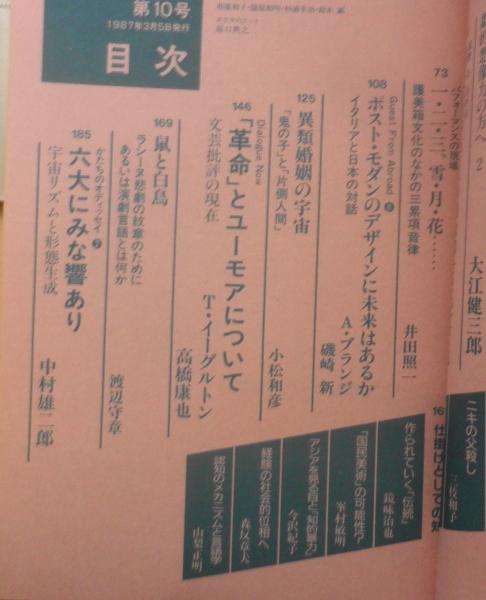 第10号
1987年3月5日発行
目次
2
大江健三郎
パフォーマンスの現場
73
一・二・三。雪・月・花……
護美箱文化のなかの三累項音律
井田照一
Guest From Abroad
108
ポスト・モダンのデザインに未来はあるか
イタリアと日本の対話
A・ブランジ
磯崎新
125
異類婚姻の宇宙
「鬼の子」と「片側人間」
小松和彦
Dialogue Now
146
「革命」とユーモアについて
文芸批評の現在
T・イーグルトン
高橋康也
169
鼠と白鳥
ラシーヌ悲劇の紋章のために
あるいは演劇言語とは何か
渡辺守章
かたちのオディッセイ❷
185
六大にみな響あり
宇宙リズムと形態生成
中村雄二郎
ニキの父殺し
三枝和子
16
仕掛けとしての
作られていく「伝統」
鏡味治也
「国民美術」の可能性?
峯村敏明
アジアを見る目と「知的暴力」
今沢紀子
経験の社会的位相へ
森反章夫
認知のメカニズムと言語学
山梨正明